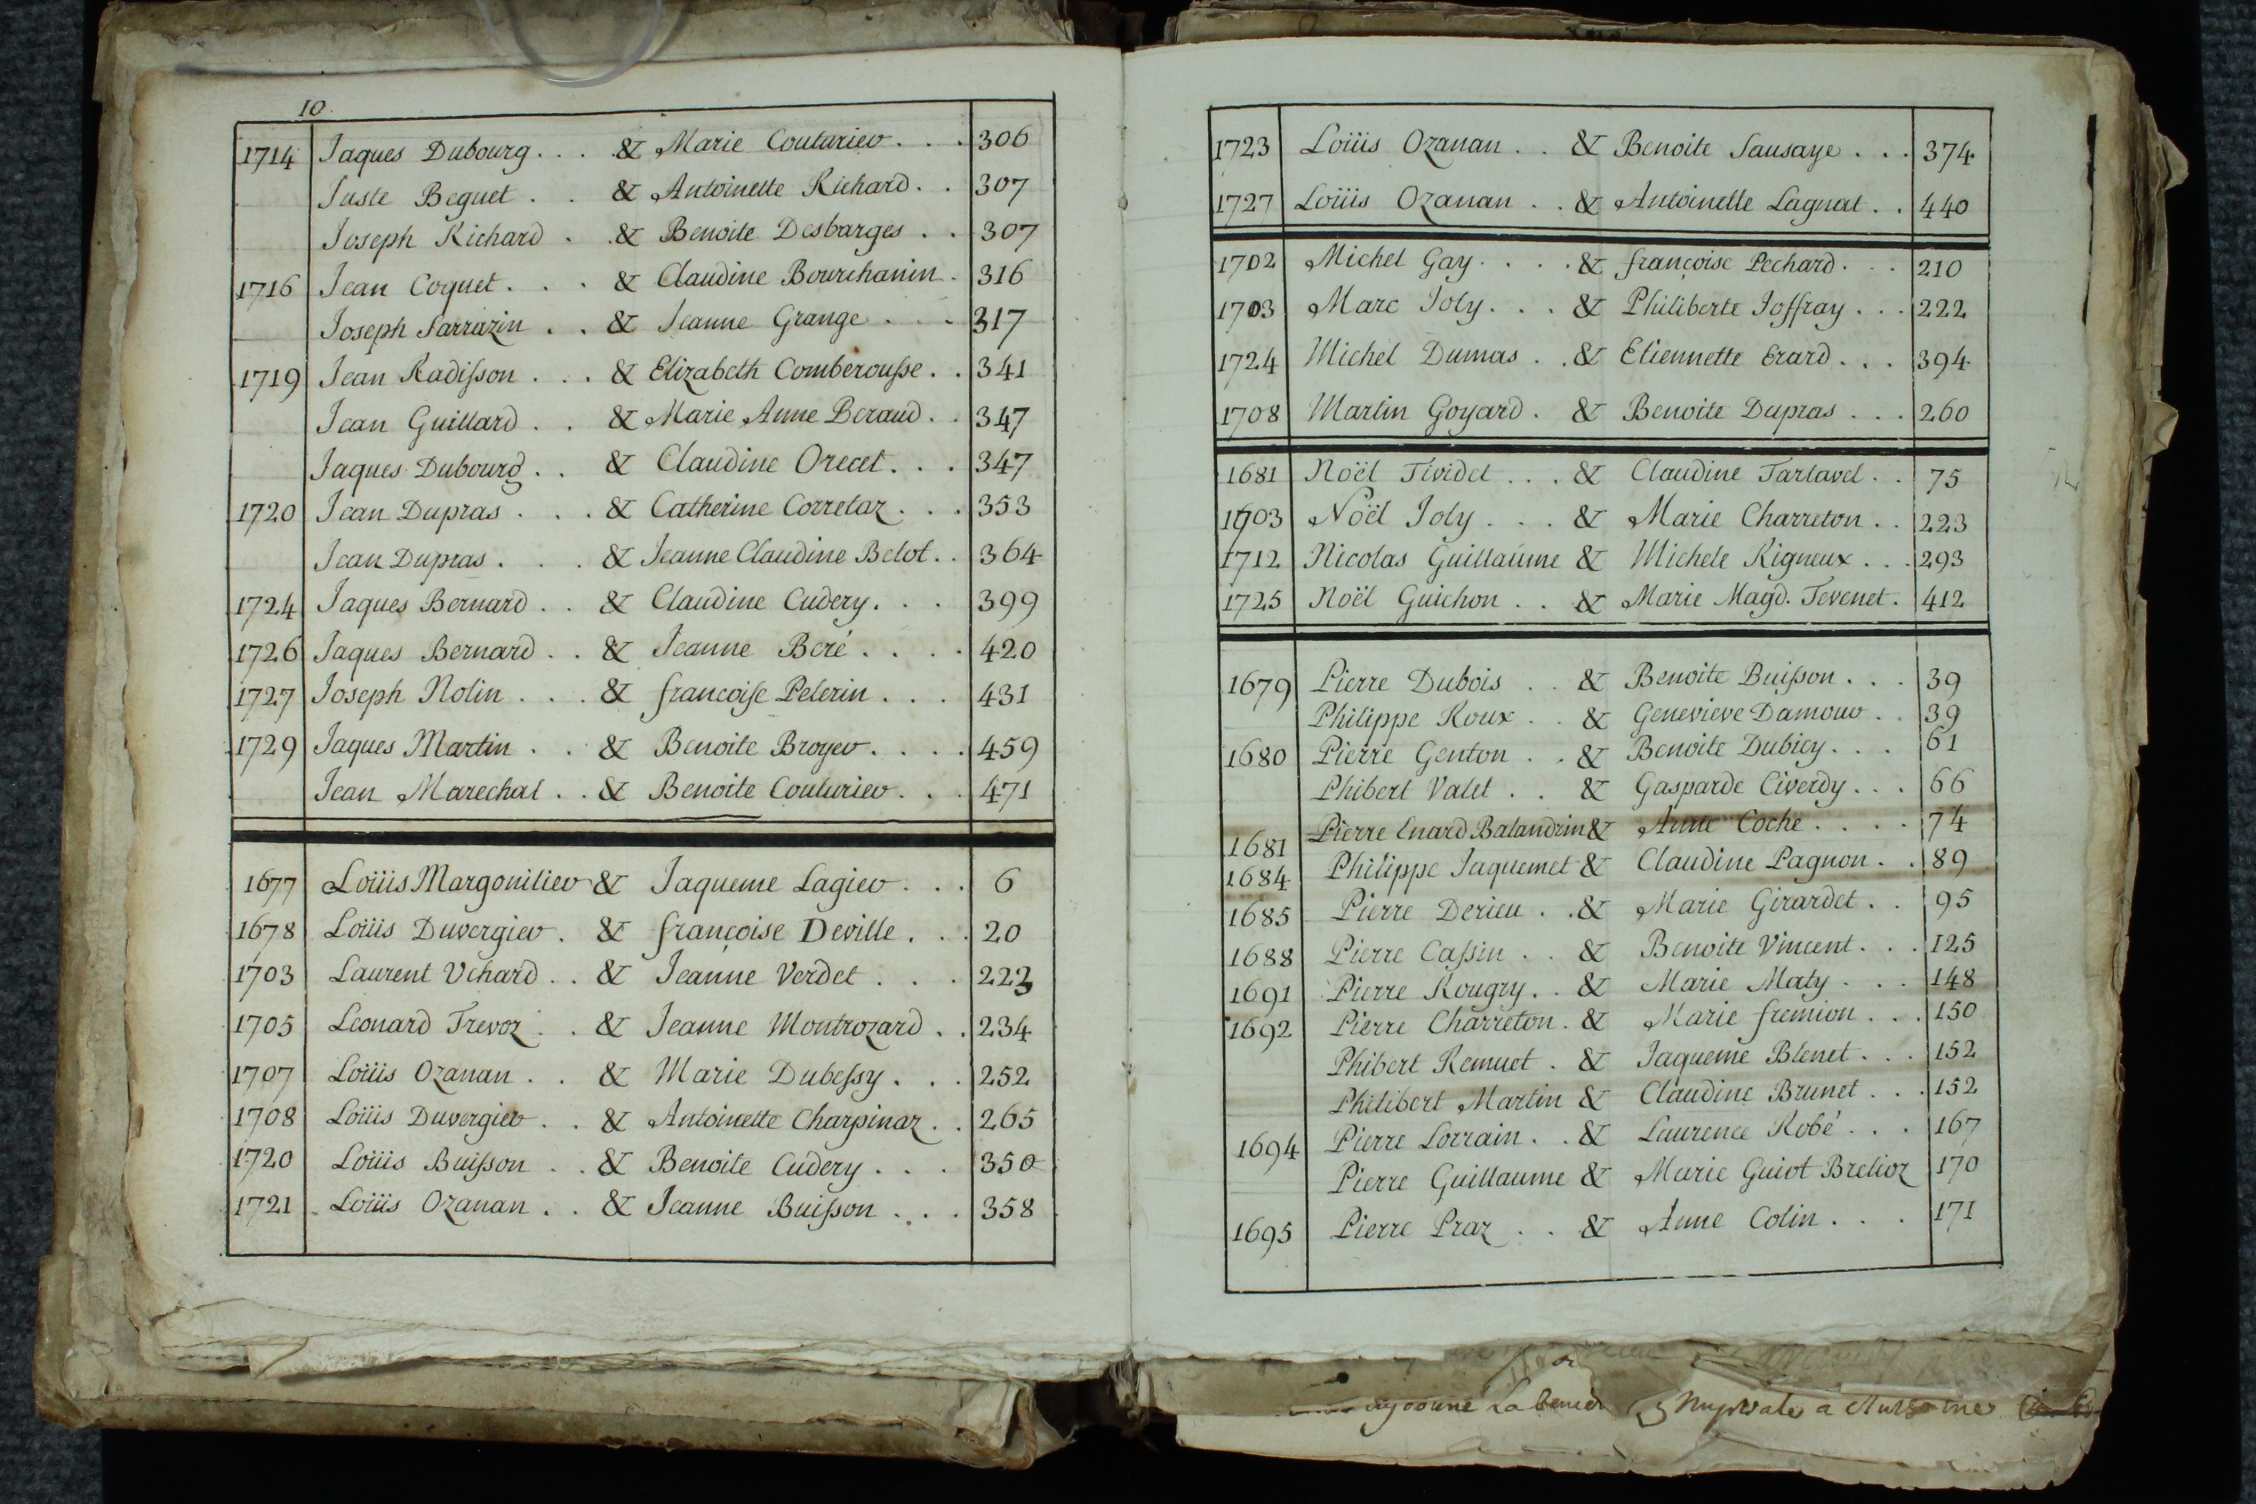 10.
1714 Jaques Dubourg . . . & Marie Couturier . . . 306
Juste Beguet . . & Antoinette Richard . . 307
Joseph Richard . . & Benoite Desbarges . . 307
1716 Jean Coquet . . . & Claudine Bourchanin . 316
Joseph Sarrazin . . & Jeanne Grange . . . 317
1719 Jean Radisson . . . & Elizabeth Comberousse . . 341
Jean Guillard . . & Marie Anne Beraud . . 347
Jaques Dubourg . . & Claudine Orecel . . . 347
1720 Jean Dupras . . . & Catherine Corretaz . . . 353
Jean Dupras . . . & Jeanne Claudine Belot . . 364
1724 Jaques Bernard . . & Claudine Cudery . . . 399
1726 Jaques Bernard . . & Jeanne Beré . . . . 420
1727 Joseph Nolin . . . & françoise Pelerin . . . 431
1729 Jaques Martin . . & Benoite Broyer . . . . 459
Jean Marechal . . & Benoite Couturier . . . 471
1677 Loüis Margonilier & Jaqueme Lagier . . . 6
1678 Loüis Duvergier . & françoise Deville . . . 20
1703 Laurent Vchard . . & Jeanne Verdet . . . 223
1705 Leonard Trevoz . . & Jeanne Montrozard . . 234
1707 Loüis Ozanan . . & Marie Dubessy . . . 252
1708 Loüis Duvergier . . & Antoinette Charpinaz . . 265
1720 Loüis Buisson . . & Benoite Cudery . . . 350
1721 Loüis Ozanan . . & Jeanne Buisson . . . 358
1723 Loüis Ozanan . . & Benoite Sausaye . . . 374
1727 Loüis Ozanan . . & Antoinette Lagnat . . 440
1702 Michel Gay . . . . & françoise Pechard . . . 210
1703 Marc Joly . . . & Philiberte Joffray . . . 222
1724 Michel Dumas . . & Etiennette Erard . . . 394
1708 Martin Goyard . & Benoite Dupras . . . 260
1681 Noël Tividet . . . & Claudine Tartavel . . 75
1703 Noël Joly . . . & Marie Charreton . . 223
1712 Nicolas Guillaume & Michele Rigneux . . . 293
1725 Noël Guichon . . & Marie Magd. Tevenet . 412
1679 Pierre Dubois . . & Benoite Buisson . . . 39
Philippe Roux . . & Genevieve Damour . . 39
1680 Pierre Genton . . & Benoite Dubiey . . . 61
Phibert Valet . . & Gasparde Civerdy . . . 66
1681 Pierre Enard Balandrin & Anne Coche . . . . 74
1684 Philippe Jaquemet & Claudine Pagnon . . 89
1685 Pierre Derieu . . & Marie Girardet . . 95
1688 Pierre Cassin . . & Benoite Vincent . . . 125
1691 Pierre Rougry . . & Marie Maty . . . 148
1692 Pierre Charreton . & Marie fremion . . . 150
Phibert Remuet . & Jaqueme Blenet . . . 152
Philibert Martin & Claudine Brunet . . . 152
1694 Pierre Lorrain . . & Laurence Robé . . . 167
Pierre Guillaume & Marie Guiot Brelioz 170
1695 Pierre Praz . . & Anne Colin . . . 171
donné La bened nuptiale a Anthoine